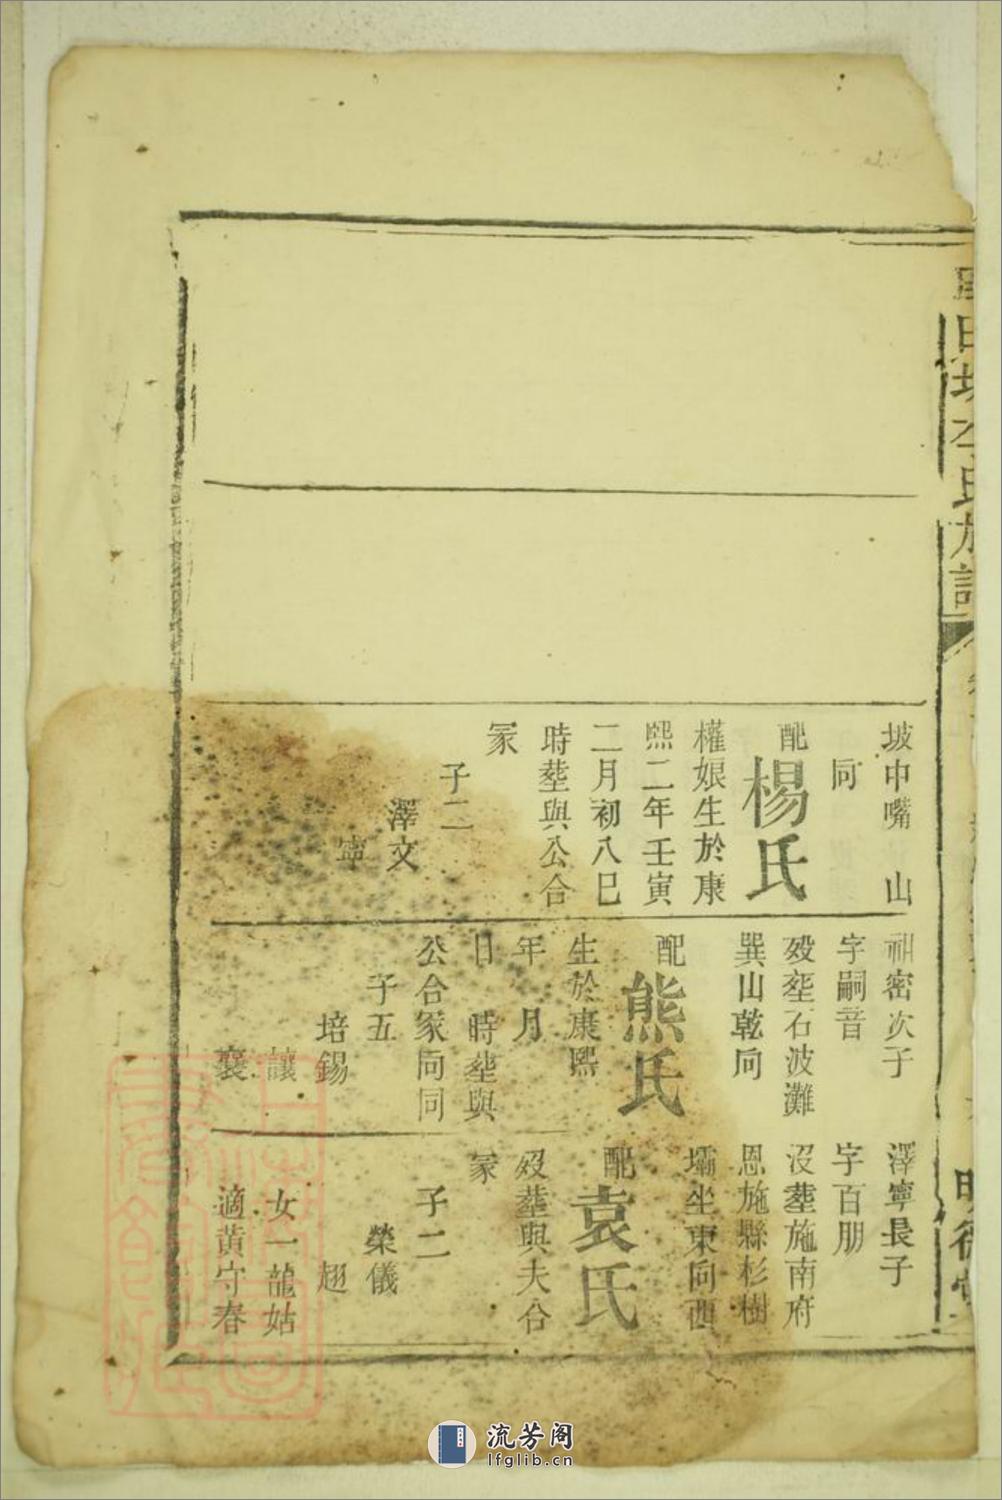 田坊李氏族譜
明德堂
坡中嘴 山
向
配楊氏
權娘生於康
熙二年壬寅
二月初八巳
時塟與公合
冢
子二
澤文
寧
祖密次子
字嗣音
歿塟石波灘
巽山乾向
配熊氏
生於康熙
年 月
日 時塟與
公合冢向同
子五
培錫
讓
襄
澤寧長子
字百朋
沒塟施南府
恩施縣杉樹
壩坐東向西
配袁氏
歿塟與夫合
冢
子二
榮儀
超
女一龍姑
適黃守春
流芳阁
lfglib.cn